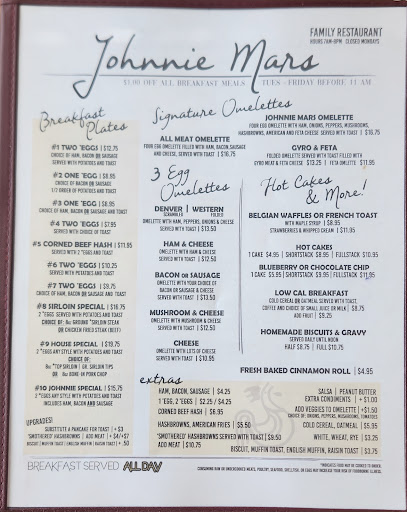 FAMILY RESTAURANT
HOURS 7AM-8PM CLOSED MONDAYS
Johnnie Mars
$1.00 OFF ALL BREAKFAST MEALS TUES - FRIDAY BEFORE 11 AM
Breakfast
Plates
#1 TWO *EGGS | $12.75
CHOICE OF HAM, BACON OR SAUSAGE
SERVED WITH POTATOES AND TOAST
#2 ONE *EGG | $8.95
CHOICE OF BACON OR SAUSAGE
1/2 ORDER OF POTATOES AND TOAST
#3 ONE *EGG | $8.95
CHOICE OF HAM, BACON OR SAUSAGE AND TOAST
#4 TWO *EGGS | $7.95
SERVED WITH CHOICE OF TOAST
#5 CORNED BEEF HASH | $11.95
SERVED WITH 2 *EGGS AND TOAST
#6 TWO *EGGS | $10.25
SERVED WITH POTATOES AND TOAST
#7 TWO *EGGS | $9.75
CHOICE OF HAM, BACON OR SAUSAGE AND TOAST
#8 SIRLOIN SPECIAL | $18.75
2 *EGGS SERVED WITH POTATOES AND TOAST
CHOICE OF: 8oz GROUND *SIRLOIN STEAK
OR CHICKEN FRIED STEAK (BEEF)
#9 HOUSE SPECIAL | $19.75
2 *EGGS ANY STYLE WITH POTATOES AND TOAST
CHOICE OF:
8oz *TOP SIRLOIN | OR SIRLOIN TIPS
OR 8oz BONE IN PORK CHOP
#10 JOHNNIE SPECIAL | $15.75
2 *EGGS ANY STYLE WITH POTATOES AND TOAST
INCLUDES HAM, BACON AND SAUSAGE
UPGRADES!
SUBSTITUTE A PANCAKE FOR TOAST | + $3
*SMOTHERED* HASHBROWNS | ADD MEAT | + $4/+$7
BISCUIT | MUFFIN TOAST | ENGLISH MUFFIN | RAISIN TOAST | + .50
Signature Omelettes
ALL MEAT OMELETTE
FOUR EGG OMELETTE FILLED WITH HAM, BACON, SAUSAGE
AND CHEESE, SERVED WITH TOAST | $16.75
JOHNNIE MARS OMELETTE
FOUR EGG OMELETTE WITH HAM, ONIONS, PEPPERS, MUSHROOMS,
HASHBROWNS, AMERICAN AND FETA CHEESE SERVED WITH TOAST | $16.75
GYRO & FETA
FOLDED OMELETTE SERVED WITH TOAST FILLED WITH
GYRO MEAT & FETA CHEESE $13.25 | FETA OMELETTE $11.95
3 Egg
Omelettes
DENVER | WESTERN
SCRAMBLED FOLDED
OMELETTE WITH HAM, PEPPERS, ONIONS & CHEESE
SERVED WITH TOAST | $13.50
HAM & CHEESE
OMELETTE WITH HAM & CHEESE
SERVED WITH TOAST | $12.50
BACON OR SAUSAGE
OMELETTE WITH YOUR CHOICE OF
BACON OR SAUSAGE & CHEESE
SERVED WITH TOAST | $13.50
MUSHROOM & CHEESE
OMELETTE WITH MUSHROOM & CHEESE
SERVED WITH TOAST | $12.50
CHEESE
OMELETTE WITH LOTS OF CHEESE
SERVED WITH TOAST | $10.95
Hot Cakes
& More!
BELGIAN WAFFLES OR FRENCH TOAST
WITH MAPLE SYRUP | $8.95
STRAWBERRIES & WHIPPED CREAM | $11.95
HOT CAKES
1 CAKE $4.95 | SHORTSTACK $8.95 | FULLSTACK $10.95
BLUEBERRY OR CHOCOLATE CHIP
1 CAKE $5.95 | SHORTSTACK $9.95 | FULLSTACK $11.95
LOW CAL BREAKFAST
COLD CEREAL OR OATMEAL SERVED WITH TOAST,
COFFEE AND CHOICE OF SMALL JUICE OR MILK | $8.75
ADD FRUIT | $9.25
HOMEMADE BISCUITS & GRAVY
SERVED DAILY UNTIL NOON
HALF $8.75 | FULL $10.75
FRESH BAKED CINNAMON ROLL | $4.95
extras
HAM, BACON, SAUSAGE | $4.25
1 *EGG, 2 *EGGS | $2.25 / $4.25
CORNED BEEF HASH | $6.95
HASHBROWNS, AMERICAN FRIES | $5.50
*SMOTHERED* HASHBROWNS SERVED WITH TOAST | $9.50
ADD MEAT | $10.75
SALSA | PEANUT BUTTER
EXTRA CONDIMENTS | + $1.00
ADD VEGGIES TO OMELETTE | +$1.50
CHOICE OF: ONIONS, PEPPERS, MUSHROOMS, TOMATOES
COLD CEREAL, OATMEAL | $5.95
WHITE, WHEAT, RYE | $3.25
BISCUIT, MUFFIN TOAST, ENGLISH MUFFIN, RAISIN TOAST | $3.75
BREAKFAST SERVED ALL DAY
*INDICATES FOOD MAY BE COOKED TO ORDER.
CONSUMING RAW OR UNDERCOOKED MEATS, POULTRY, SEAFOOD, SHELLFISH, OR EGGS MAY INCREASE YOUR RISK OF FOODBORNE ILLNESS.